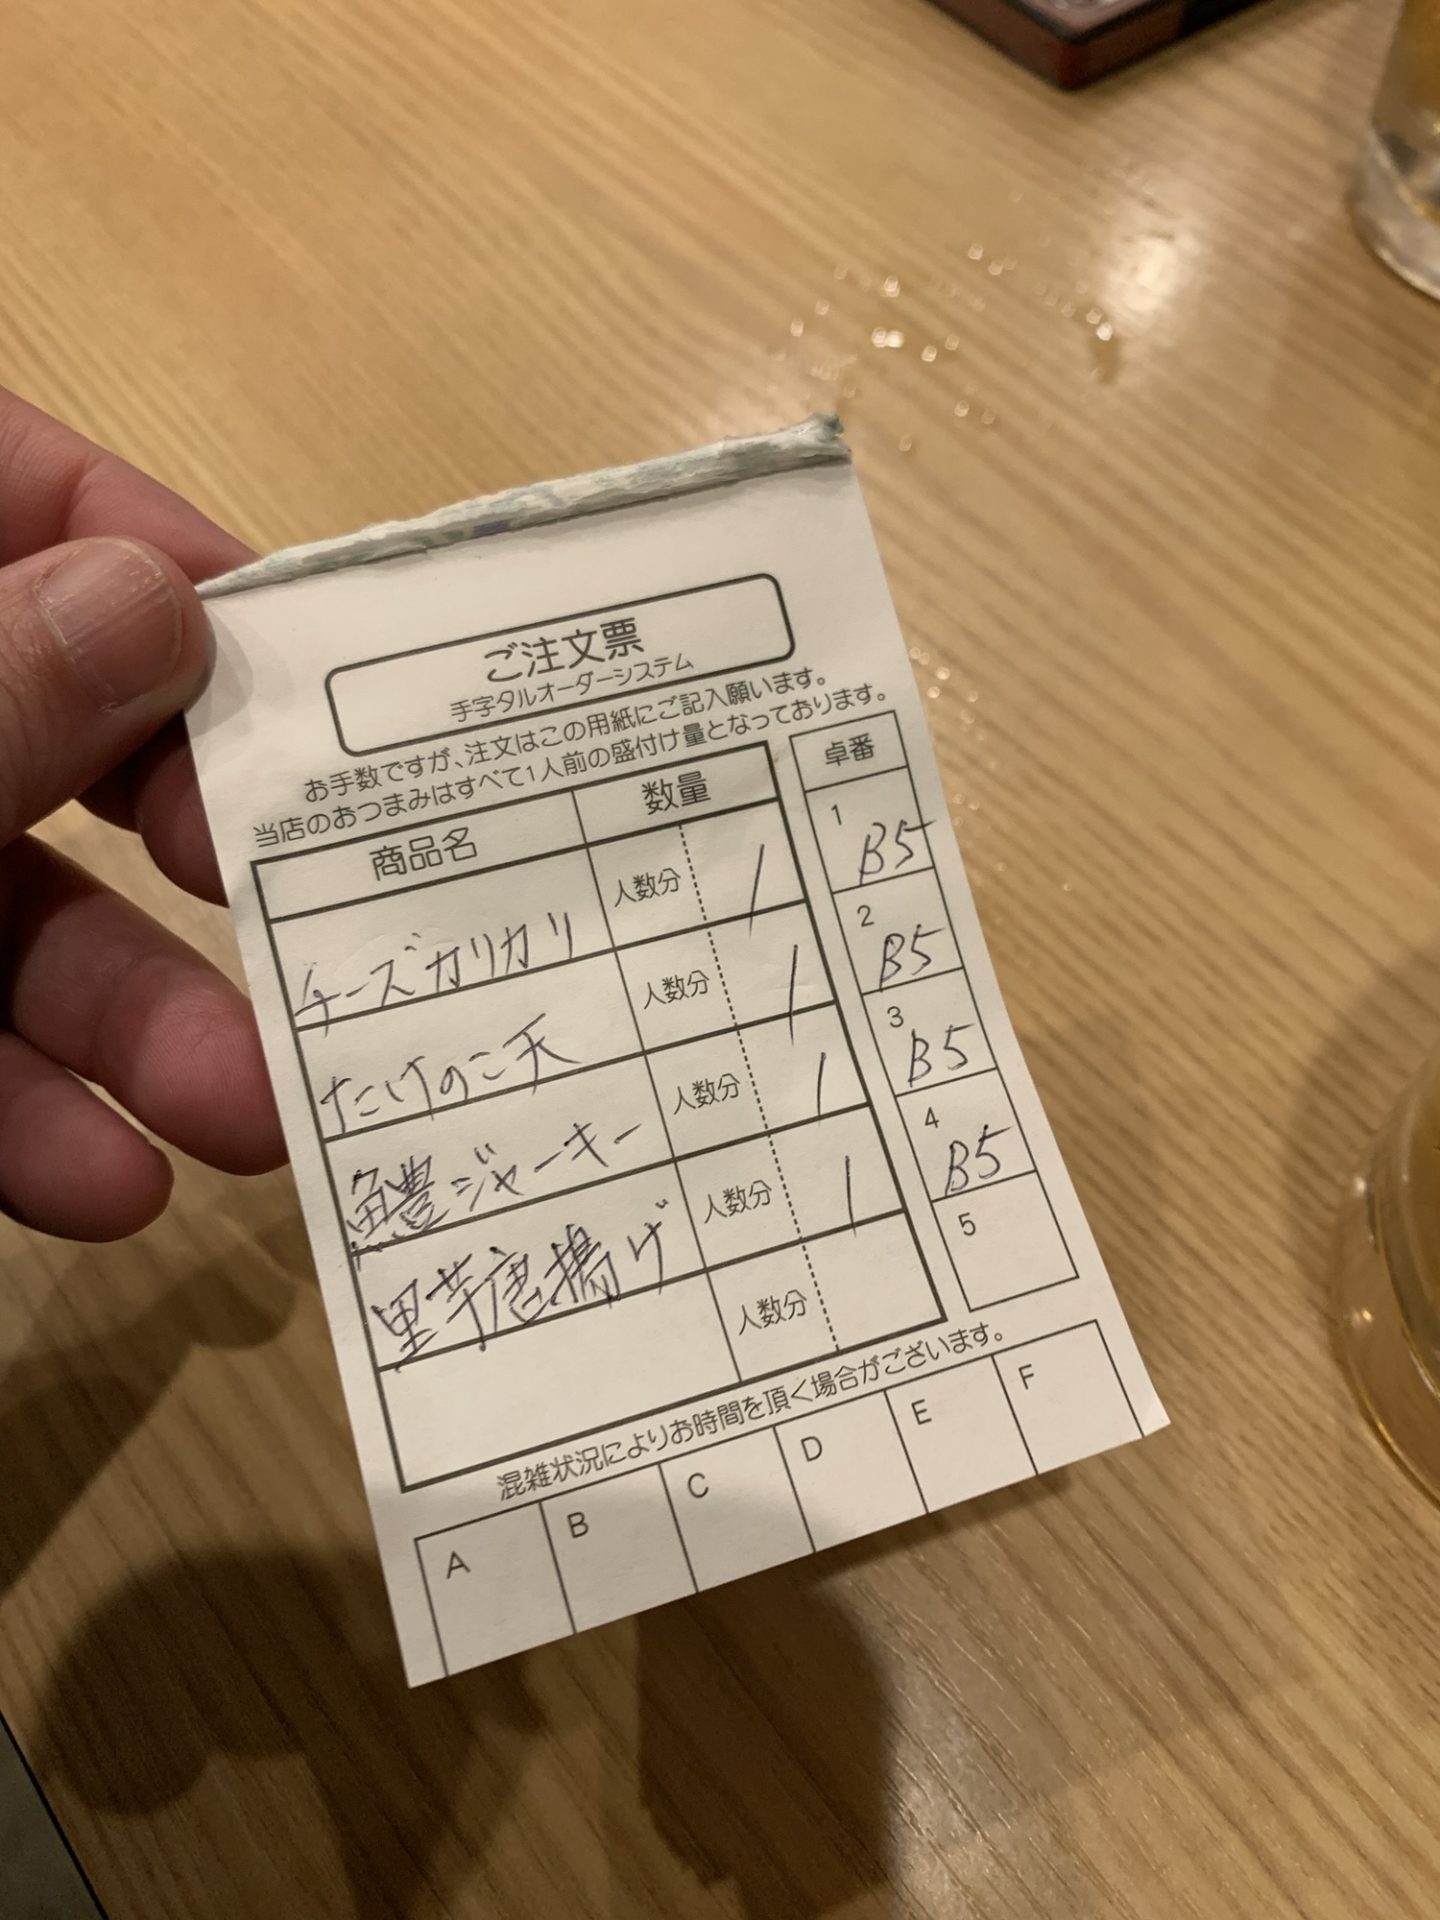 ご注文票
手字タルオーダーシステム
お手数ですが、注文はこの用紙にご記入願います。
当店のおつまみはすべて1人前の盛付け量となっております。
商品名 数量 卓番
チーズカリカリ 人数分 1 1 B5
たけのこ天 人数分 1 2 B5
鱧ジャーキー 人数分 1 3 B5
里芋唐揚げ 人数分 1 4 B5
人数分 5
混雑状況によりお時間を頂く場合がございます。
A B C D E F